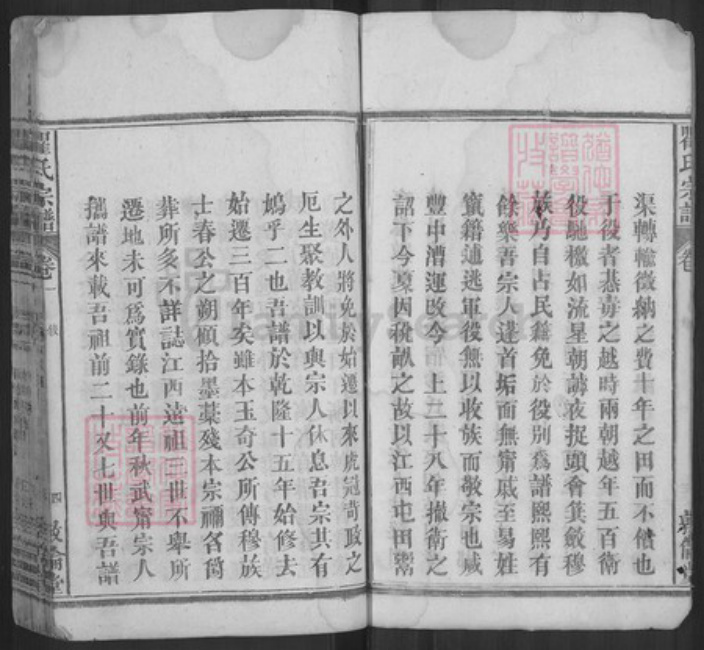 瞿氏宗譜
卷
渠轉輸徵納之費十年之田而不償也
于役者惎毒之越時兩朝越年五百衛
役馳檄如流星朝譁夜捉頭會箕斂穆
族乃自占民籍免於役別為譜熙熙有
餘樂吾宗人蓬首垢面無甯戚至易姓
竄籍逋逃軍役無以收族而敬宗也咸
豐中漕運改今上二十八年撤衛之
詔下今夏因稅畝之故以江西屯田鬻
敦倫堂
之外人將免於始遷以來虎冠苛政之
厄生聚教訓以與宗人休息吾宗其有
鳩乎二也吾譜於乾隆十五年始修去
始遷三百年矣雖本玉奇公所傳穆族
士春公之朔顧拾墨藁殘本宗禰各簡
葬所多不詳誌江西遠祖三世不舉所
遷地未可為實錄也前年秋武甯宗人
攜譜來載吾祖前二十又七世與吾譜
瞿氏宗譜
卷一
四
敦倫堂